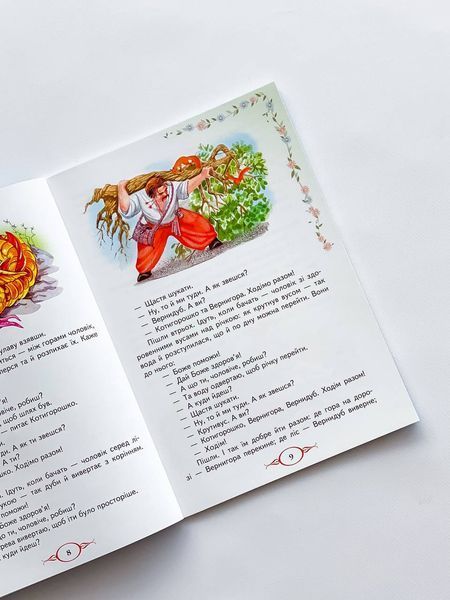 улаву взявши.
ться — між горами чоловік,
перся та й розпихає їх. Каже
'я!
віче, робиш?
щоб шлях був.
— питає Котигорошко.
ди. А як ти звешся?
А ти?
ошко. Ходімо разом!
Ідуть, коли бачать — чоловік серед лі-
укою — так дуби й вивертає з корінням.
поможи!
Боже здоров'я!
о ти, чоловіче, робиш?
рева вивертаю, щоб іти було просторіше.
куди йдеш?
8
— Щастя шукати.
— Ну, то й ми туди. А як звешся?
— Вернидуб. А ви?
— Котигорошко та Вернигора. Ходімо разом!
Пішли втрьох. Ідуть, коли бачать — чоловік зі здо-
ровенними вусами над річкою: як крутнув вусом — так
вода й розступилася, що й по дну можна перейти. Вони
до нього:
— Боже поможи!
— Дай Боже здоров'я!
— А що ти, чоловіче, робиш?
— Та воду одвертаю, щоб річку перейти.
— А куди йдеш?
— Щастя шукати.
— Ну, то й ми туди. А як звешся?
— Крутивус. А ви?
— Котигорошко, Вернигора, Вернидуб. Ходім разом!
— Ходім!
Пішли. І так їм добре йти разом: де гора на доро-
зі — Вернигора перекине; де ліс — Вернидуб виверне;
9